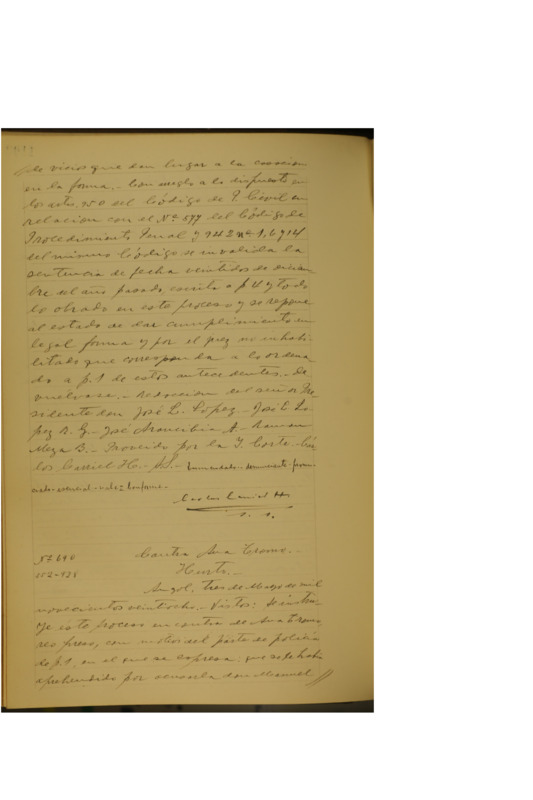 de vicios que dan lugar a la casacion
en la forma.- Con arreglo a lo dispuesto en
los arts. 950 del Código de P. Civil en
relacion con el Nº 577 del Código de
Procedimiento Penal y 942 nº 1, 6 y 14
del mismo Código se invalida la
sentencia de fecha veintidos de diciem-
bre del año pasado, escrita a f. y todo
lo obrado en este proceso y se repone
al estado de dar cumplimiento en
legal forma y por el juez no inhabi-
litado que corresponda a lo ordena-
do a f. 1 de estos antecedentes.- De-
vuélvase.- Redaccion del señor Pre-
sidente don José L. Lopez.- José L. Lo-
pez B. G.- José Arancibia A.- Ramon
Meza B.- Proveido por la I. Corte.- Cár-
los H.- 
Carlos
S. S.
Nº 640
Contra Ana
Hurto.-
Angol, tres de Mayo de mil
novecientos veintiocho.- Vistos: Se instru-
ye este proceso en contra de Ana
reo preso, con motivo del parte de policía
de f. 1, en el que se expresa: que
aprehendido por don Manuel